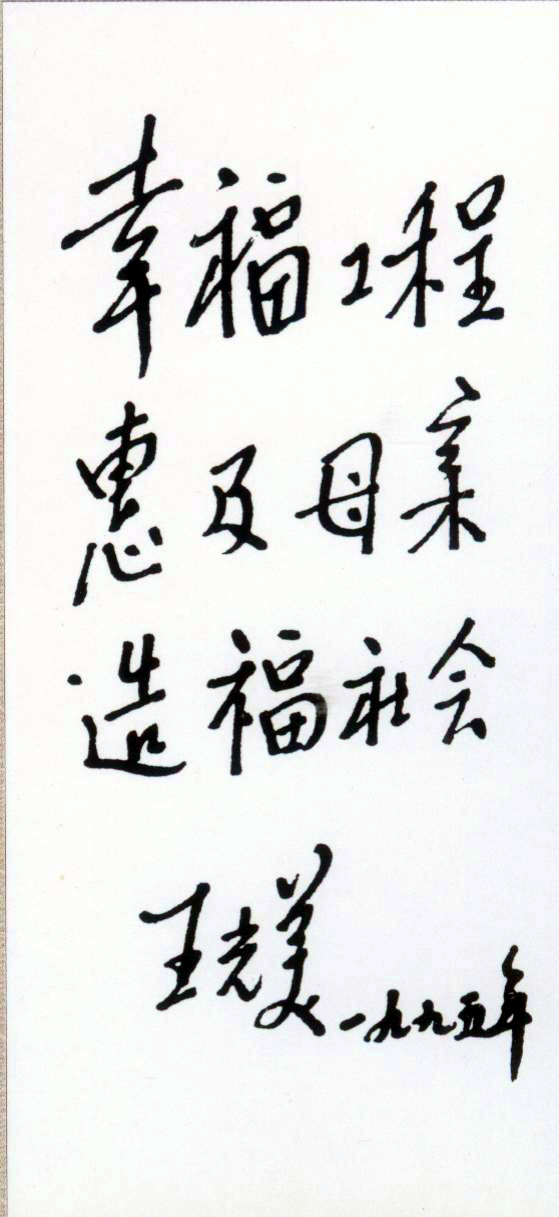 幸福工程
惠及母亲
造福社会
王光美一九九五年